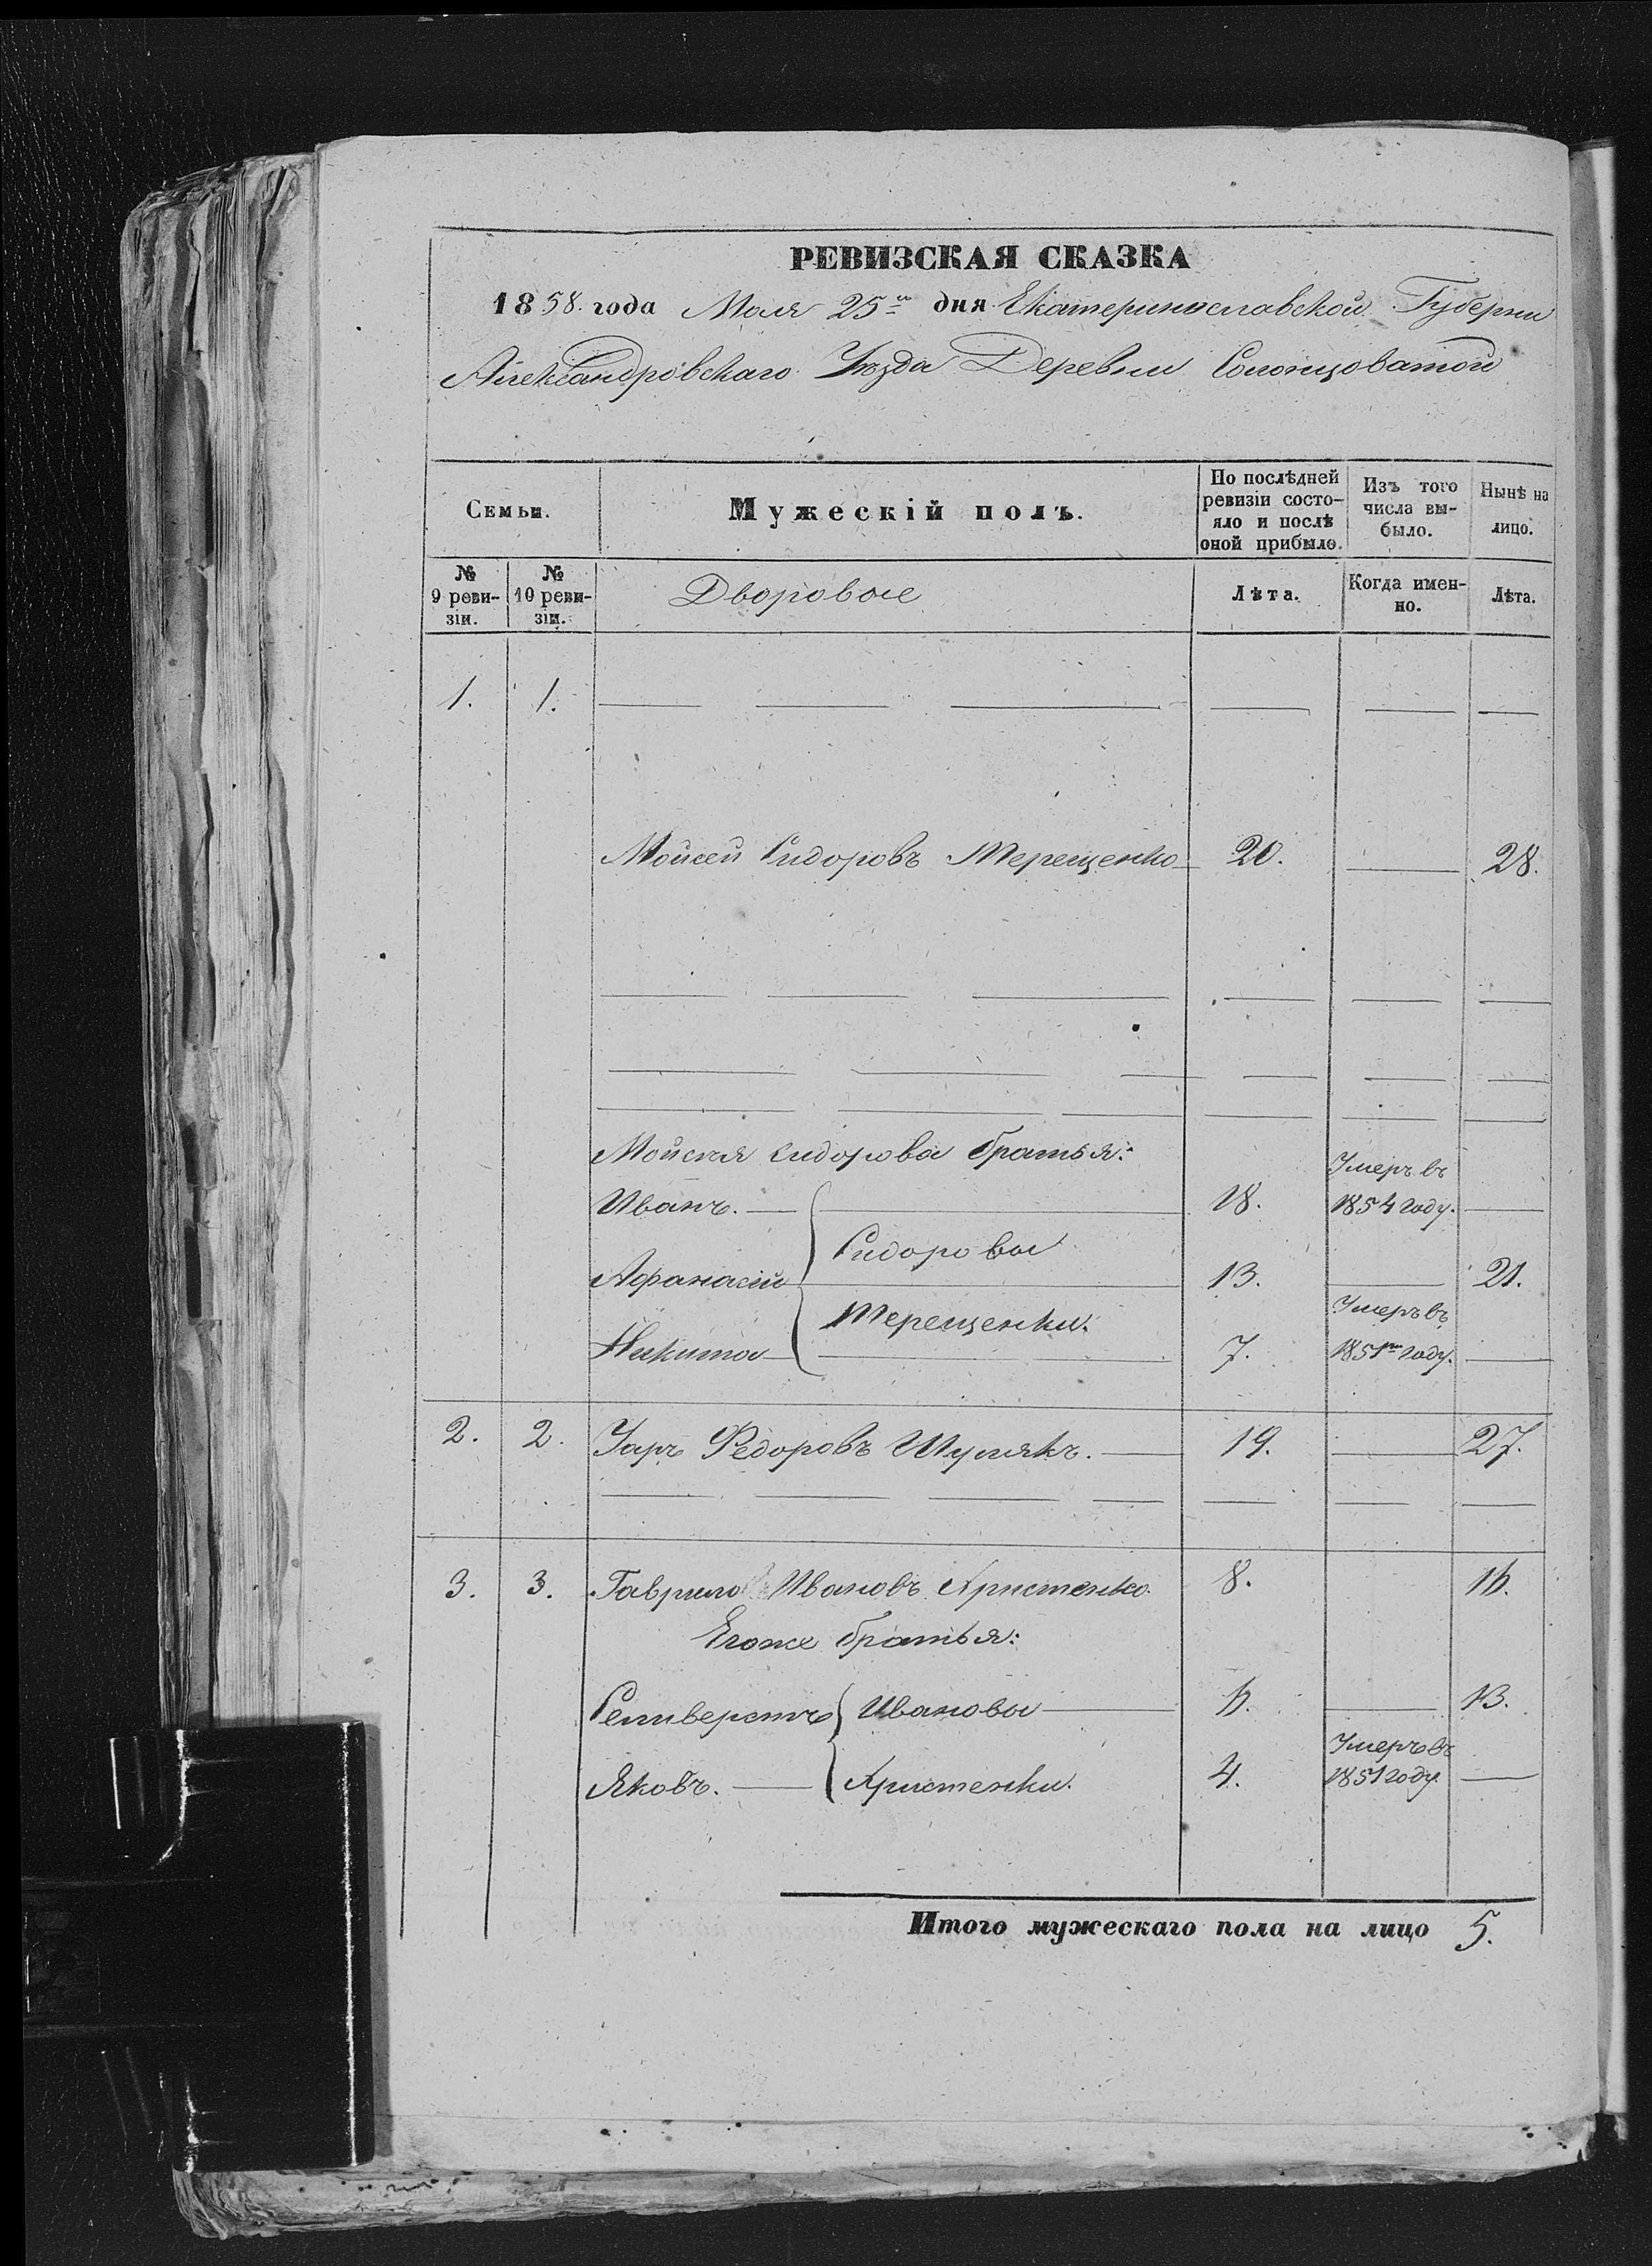 РЕВИЗСКАЯ СКАЗКА
1858. года Маія 25го дня Екатеринославской Губерніи
Александровскаго Уѣзда Деревни Солонцоватой
Семьи.
Мужескій полъ.
По послѣдней ревизіи состояло и послѣ оной прибыло.
Изъ того числа выбыло.
Нынѣ на лицо.
№ 9 ревизіи.
№ 10 ревизіи.
Дворовые
Лѣта.
Когда именно.
Лѣта.
1. 1.
Мойсей Сидоровъ Терещенко 20. 28.
Мойсея Сидорова братья:
Иванъ. 18. Умеръ въ 1854 году.
Сидоровы
Афанасій 13. 21.
Терещенки.
Никита 7. Умеръ въ 1851м году.
2. 2. Уаръ Федоровъ Шулякъ. 19. 27.
3. 3. Гаврило Ивановъ Христенко. 8. 16.
Егоже братья:
Селиверстъ Ивановы 5. 13.
Яковъ. Христенки. 4. Умеръ въ 1851 году.
Итого мужескаго пола на лицо 5.